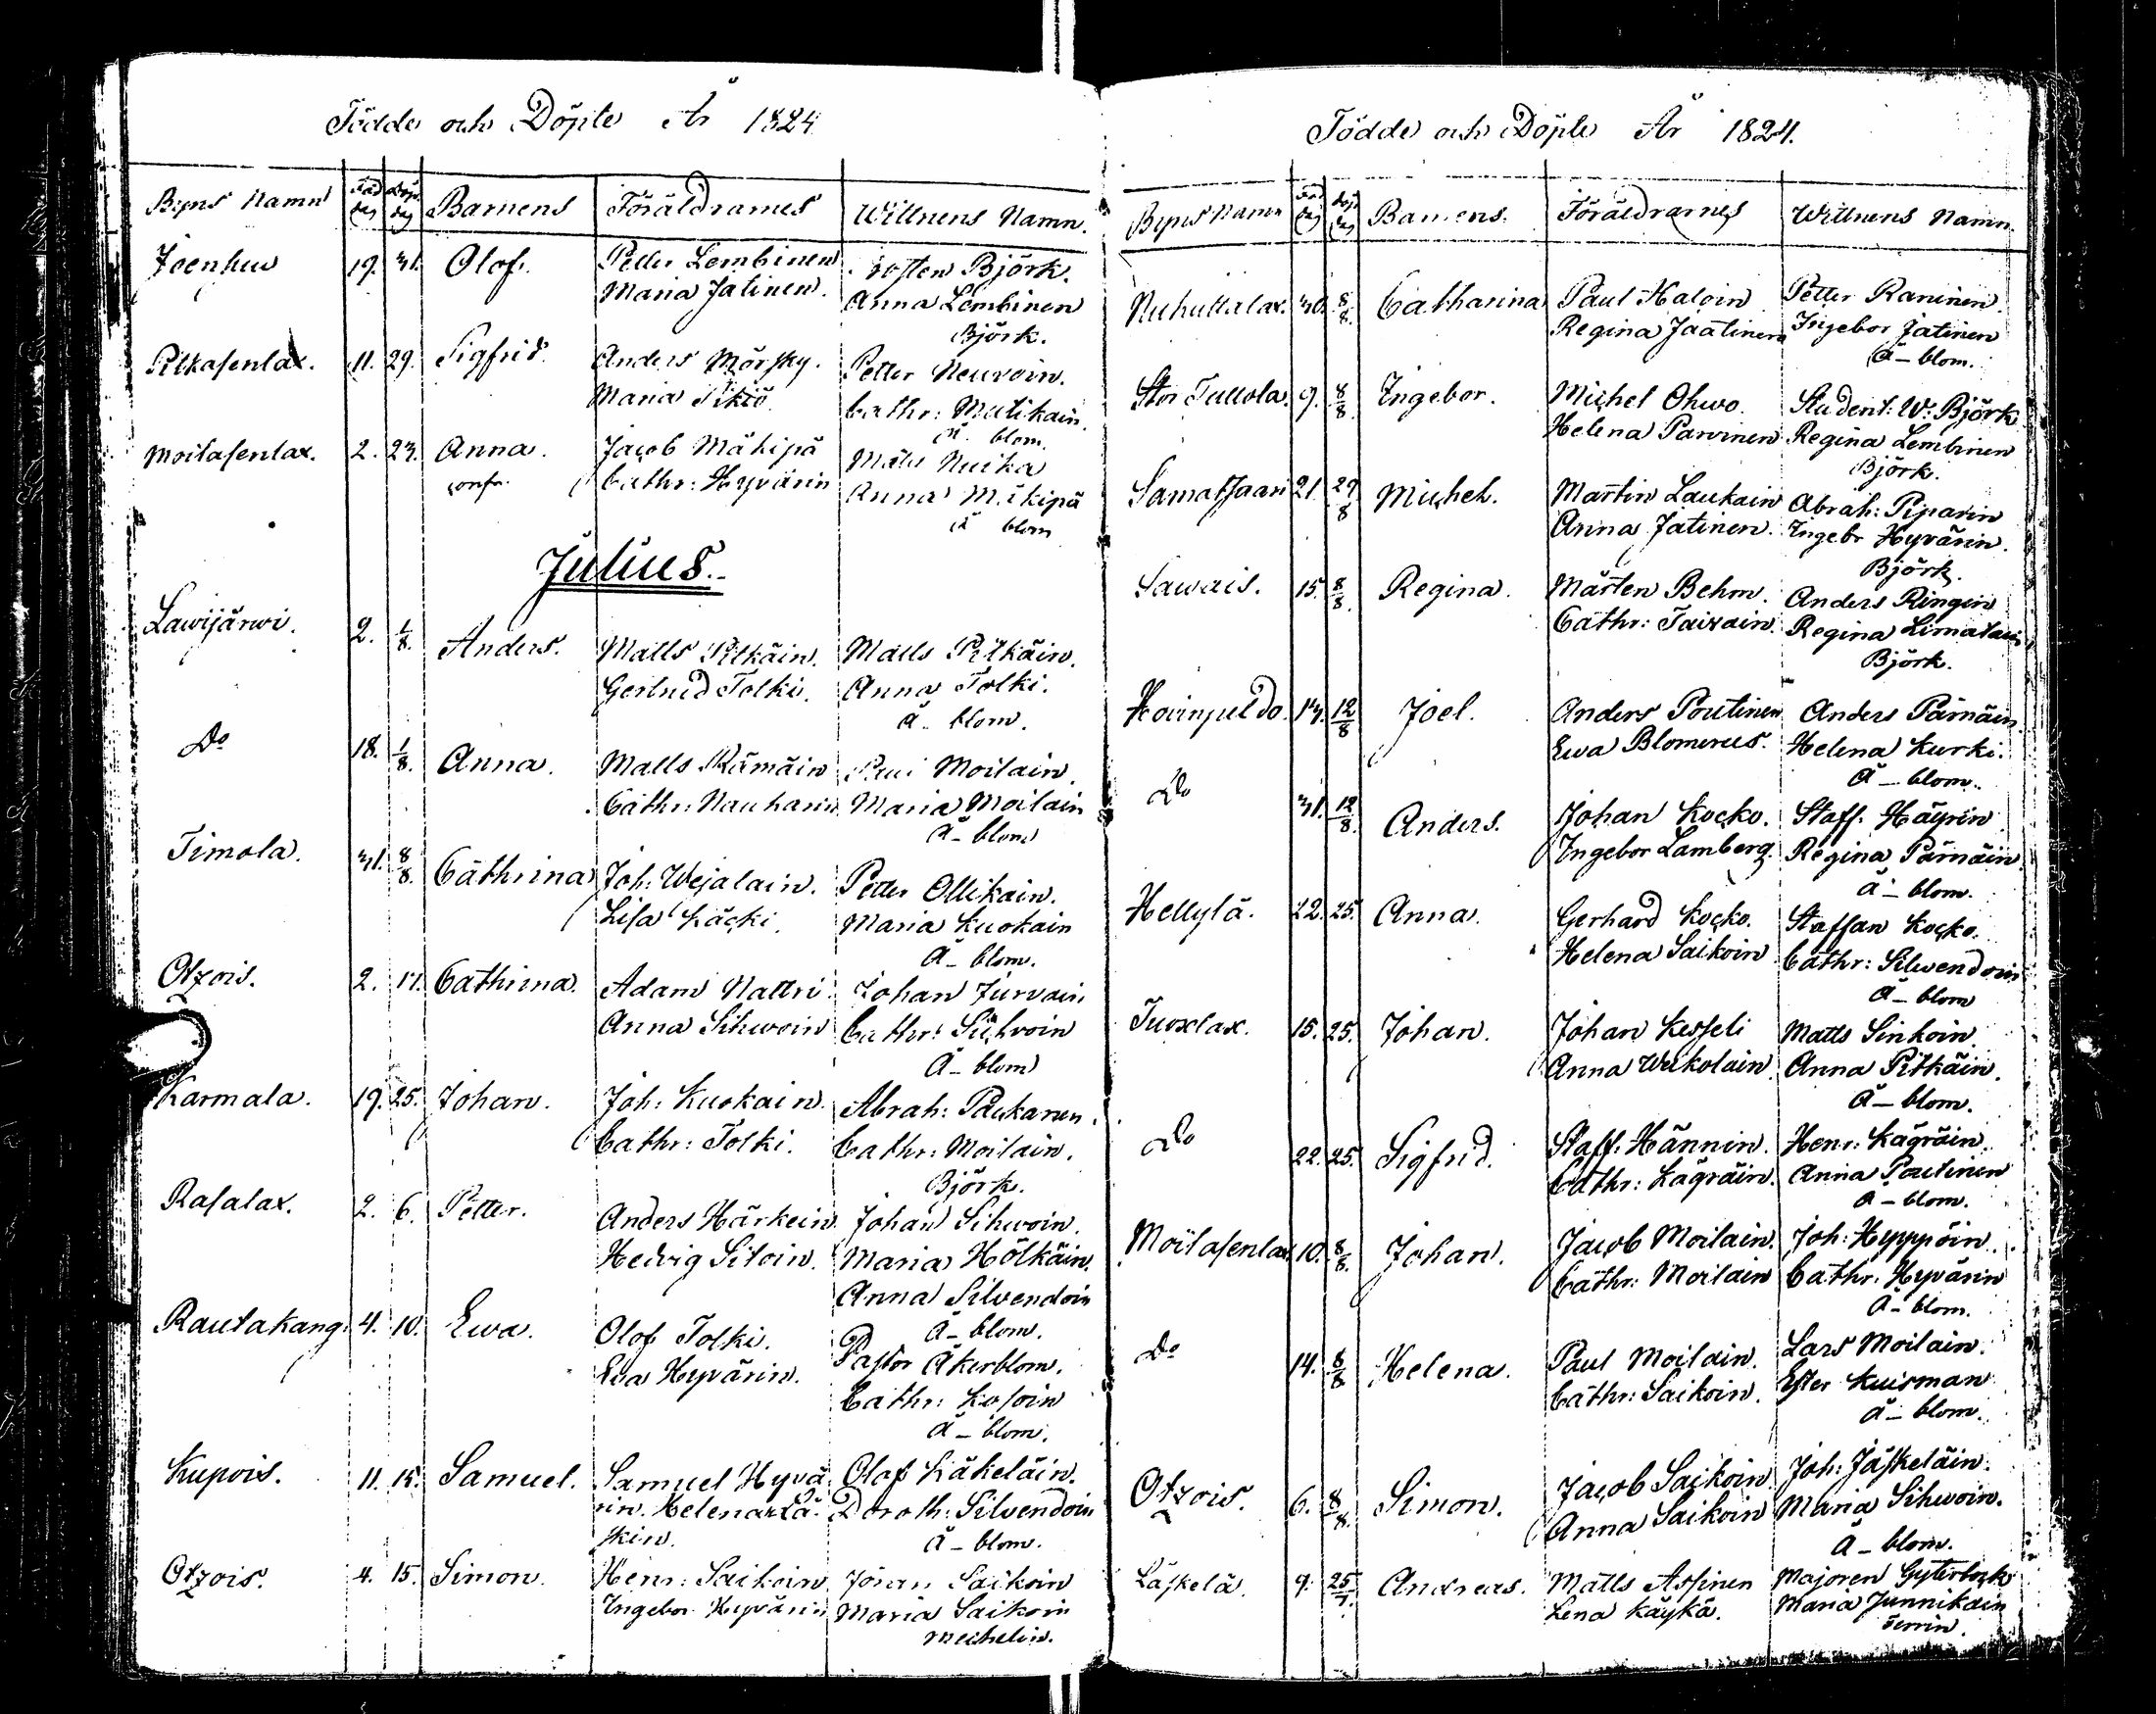 Födde och Döpte År 1824
Byns Namn Föd dag Döp. dag Barnens Föräldrarnes Wittnens Namn.
Joenhuu 19. 31. Olof. Petter Lembinen Björk.
Maria Jatinen. Anna Lembinen
Björk.
Pitkasenlax. 11. 29. Sigfrid. Anders Mörsky. Petter Neuvoin.
Maria Pikiö. Cathr: Mutikain.
Å blom.
Moilasenlax. 2. 23. Anna. Jacob Mäkipä Mats Nuika
Cathr: Hyvärin Anna Mäkipä
Å blom
Julius.
Lawijärwi. 2. 1/8. Anders. Matts Pitkäin. Matts Pitkäin.
Gertrud Tolki. Anna Tolki.
Å- blom.
Do 18. 1/8. Anna. Matts Rämäin Moilain
Cathr: Nauhanin Maria Moilain
Å- blom
Timola. 31. 8/8. Cathrina Joh: Wejalain. Petter Ollikain.
Lisa Käcki. Maria Kuokain
Å- blom.
Otzois. 2. 11. Cathrina. Adam Nattri. Johan Jurvain
Anna Sihwoin Cathr: Sihvoin
Å- blom
Karmala. 19. 25. Johan. Joh: Kuokain. Abrah: Paukanen.
Cathr: Tolki. Cathr: Moilain.
Björk.
Rasalax. 2. 6. Petter. Anders Härkein Johan Sihwoin.
Hedvig Siloin. Maria Hölkäin.
Anna Silvendoin
Å- blom.
Rautakang. 4. 10. Ewa. Olof Tolki. Pastor Åkerblom.
Eva Hyvärin. Cathr: Kosoin
Å- blom.
Kupois. 11. 15. Samuel. Samuel Hyvä Olof Käkeläin.
rin. Helena Lä- Doroth: Silvendoin
skin. Å- blom.
Otzois. 4. 15. Simon. Henr: Saikoin Johan Saikoin
Ingebor Hyvärin Maria Saikoin
Michelin.
Födde och Döpte År 1824.
Byns Namn Föd dag Döp. dag Barnens Föräldrarnes Wittnens Namn.
Nuhuttalax. 30. 8/8. Catharina Paul Haloin Petter Raninen.
Regina Jaatinen Ingebor Jatinen
Å- blom.
Stor Tullola. 9. 8/8. Ingebor. Michel Ohwo. Student: W: Björk
Helena Parvinen Regina Lembinen
Björk.
Samatsaari 21. 29/8 Michel. Martin Laukain Abrah: Piparin
Anna Jatinen. Ingebr Hyvärin.
Björk.
Sawais. 15. 8/8. Regina. Mårten Behm. Anders Ringin
Cathr: Taivain. Regina Limatain
Björk.
Hovinpeldo. 13. 12/8 Joel. Anders Poutinen Anders Pärnäin
Ewa Blomerus. Helena Kurki.
Å- blom.
Do 31. 12/8. Anders. Johan Kocko. Staff. Häyrin
Ingebor Lamberg. Regina Pärnäin
Å- blom.
Hellylä. 22. 25. Anna. Gerhard Kocko. Staffan Kocko.
Helena Saikoin Cathr: Silwendoin
Å- blom
Tuoxlax. 15. 25. Johan. Johan Kesseli Matts Sinkoin.
Anna Weikolain. Anna Pitkäin.
Å- blom.
Do 22. 25. Sigfrid. Staff: Hännin. Henr: Kägräin.
Cathr: Kägräin. Anna Poutinen
Å- blom.
Moilasenlax 10. 8/8. Johan. Jacob Moilain. Joh: Hyyppöin.
Cathr: Moilain Cathr: Hyvärin
Å- blom.
Do 14. 8/8 Helena. Paul Moilain. Lars Moilain.
Cathr: Saikoin. Ester Kuisman
Å- blom.
Otzois. 6. 8/8. Simon. Jacob Saikoin Joh: Jäskeläin.
Anna Saikoin Maria Sihwoin.
Å- blom.
Läskelä. 9. 25/7. Andreas. Matts Assinen Majoren Gyterbock
Lena Käykä. Maria Junnikain